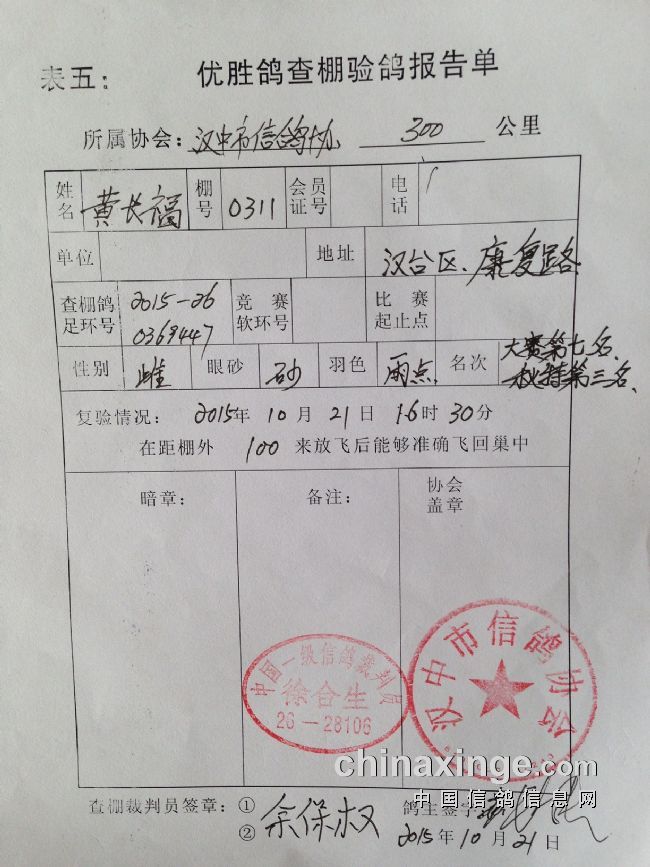 表五： 优胜鸽查棚验鸽报告单
所属协会：汉中市信鸽协 300 公里
姓名 黄长福 棚号 0311 会员证号 电话
单位 地址 汉台区、康复路
查棚鸽足环号 2015-26 0369447 竞赛软环号 比赛起止点
性别 雌 眼砂 砂 羽色 雨点 名次 大赛第七名、秋特第三名、
复验情况： 2015年 10 月 21 日 16时 30分
在距棚外 100 来放飞后能够准确飞回巢中
暗章： 备注： 协会盖章
中国一级信鸽裁判员
徐合生
26-28106
汉中市信鸽协会
chinaxinge.com
中国信鸽信息网
查棚裁判员签章：① 鸽主签字
② 余保权
2015年 10 月 21 日